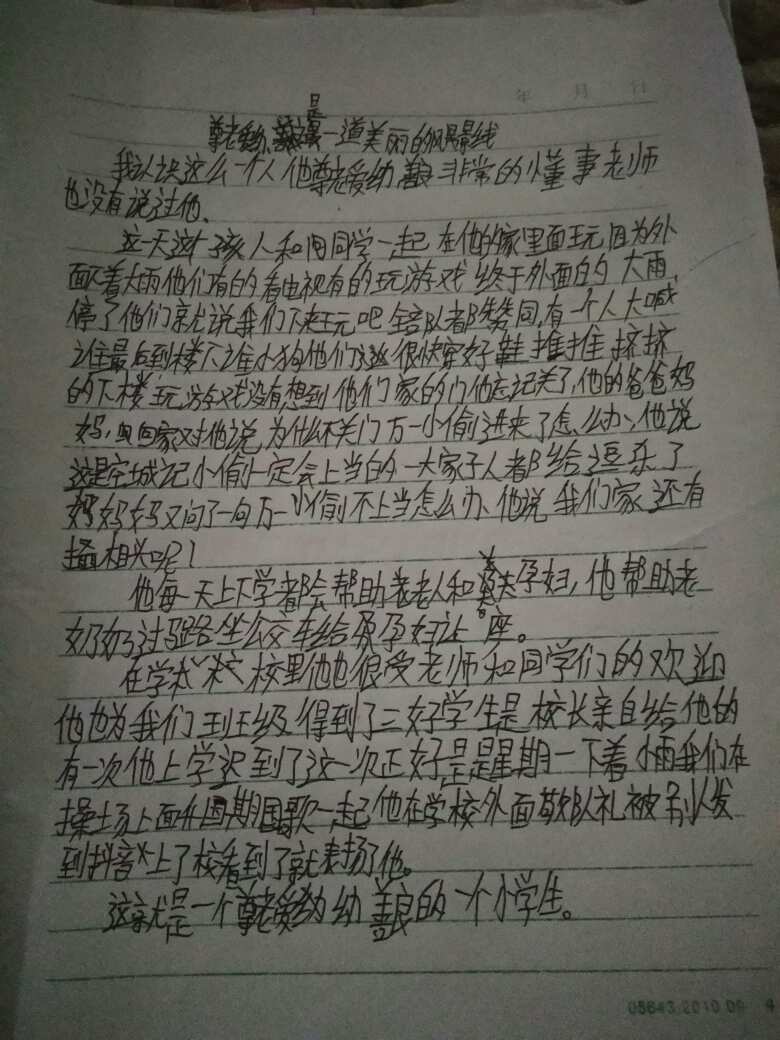 年 月 日
是
尊老爱幼、一道美丽的风景线
我认识这么一个人他尊老爱幼善良非常的懂事老师
也没有说过他、
这一天这个孩人和同学一起在他的家里面玩因为外
面下着大雨他们有的看电视有的玩游戏终于外面的大雨、
停了他们就说我们下来玩吧全部队都赞同,有一个人大喊
谁最后到楼下谁小狗他们很快穿好鞋推推挤挤
的下楼玩游戏没有想到他们家的门他忘记关了,他的爸爸妈
妈,回家对他说为什么不关门万一小偷进来了怎么办、他说
这是空城记小偷一定会上当的一大家子人都给逗乐了
妈妈又问了一句万一小偷不上当怎么办、他说我们家还有
摄相头呢!
他每天上下学都会帮助老人和孕妇,他帮助老
奶奶过马路坐公交车给孕妇让座。
在学校里他也很受老师和同学们的欢迎
他也为我们班级得到了三好学生是校长亲自给他的
有一次他上学迟到了这一次正好是是星期一下着小雨我们在
操场上面升国期国歌一起他在学校外面敬队礼被别人发
到抖音上了校看到了就表扬了他。
这就是一个尊老爱幼幼善良的一个小学生。
05643 2010 09 4